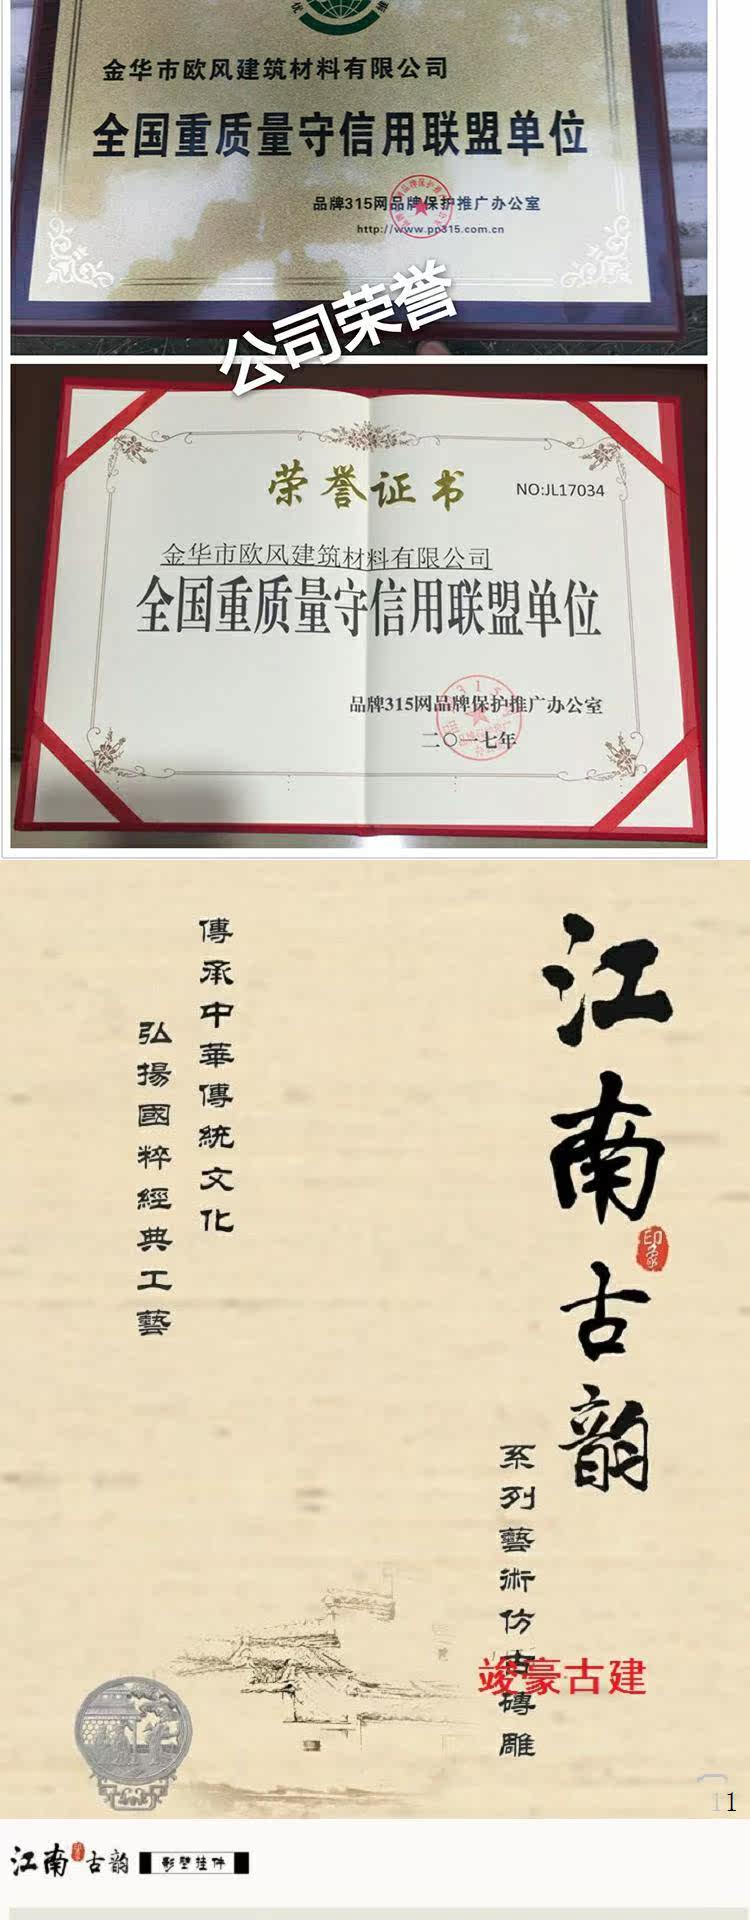 优 维
金华市欧风建筑材料有限公司
全国重质量守信用联盟单位
品牌315网品牌保护推广办公室
http://www.pp315.com.cn
公司荣誉
荣誉证书
NO:JL17034
金华市欧风建筑材料有限公司
全国重质量守信用联盟单位
品牌315网品牌保护推广办公室
二〇一七年
江南古韵
印象
傳承中華傳統文化
弘揚國粹經典工藝
系列藝術仿古磚雕
竣豪古建
11
江南古韵
影壁挂件